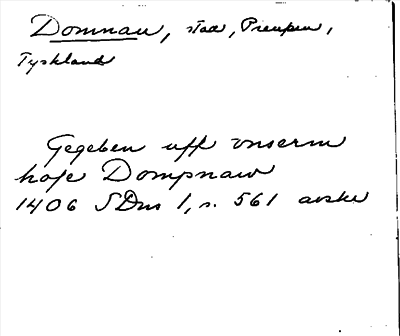 Domnau, stad, Preussen,
Tyskland
Gegeben uff vnserm
hofe Dompnaw
1406 SDns 1, s. 561 avskr